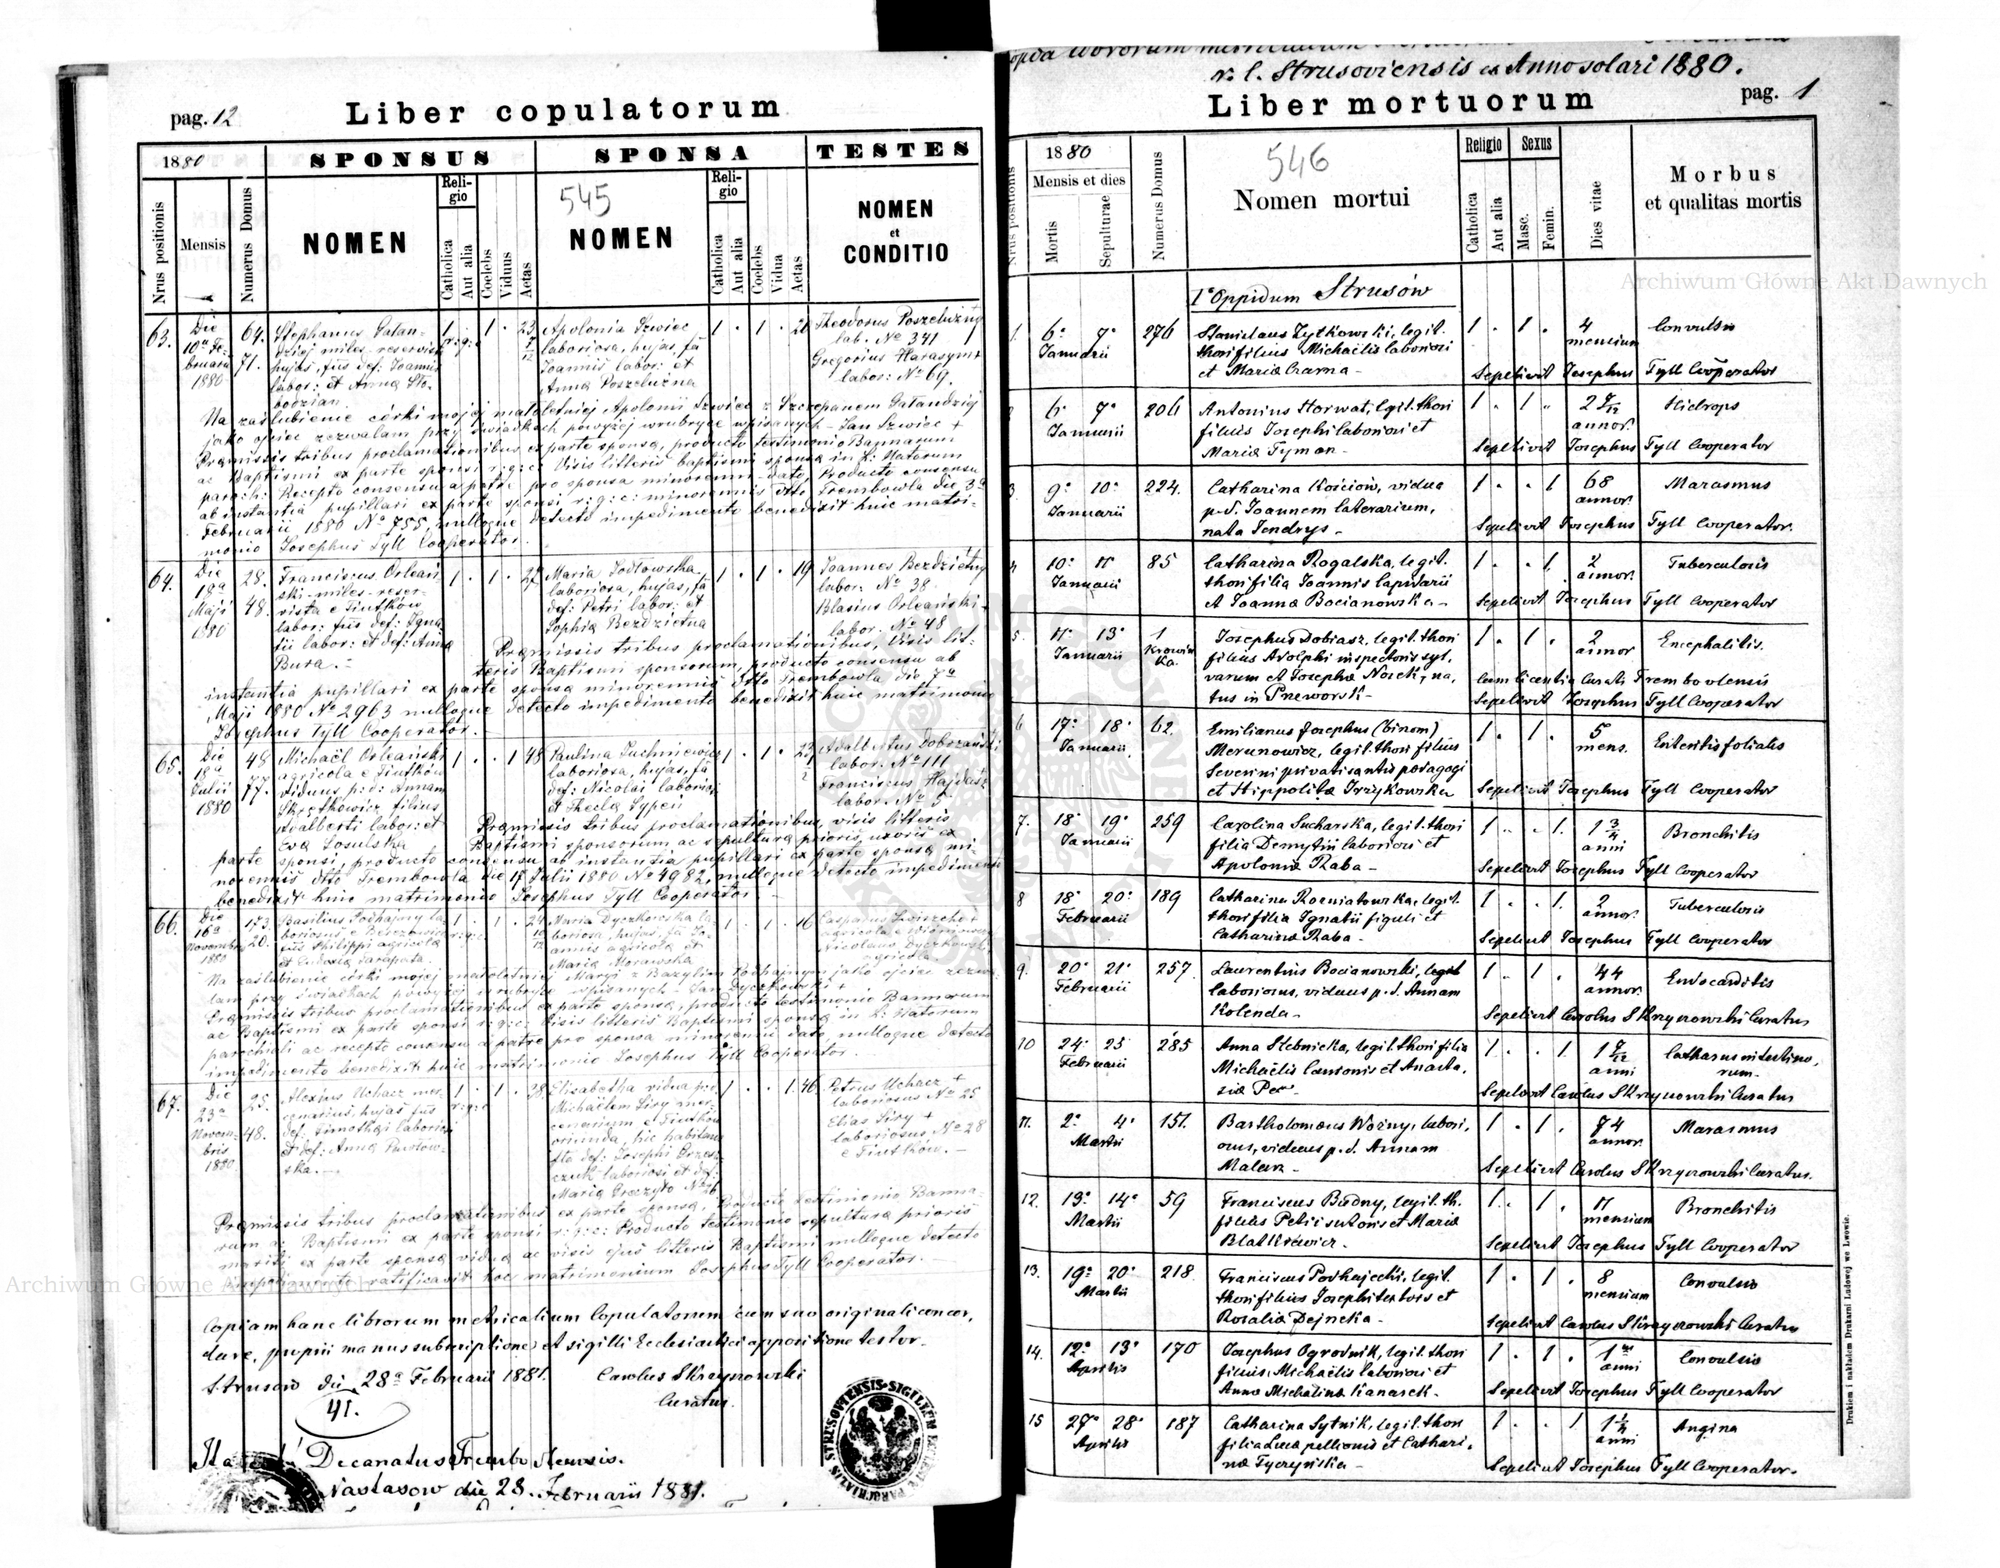 pag. 12
Liber copulatorum
1880
SPONSUS
SPONSA
TESTES
Nrus positionis
Mensis
Numerus Domus
NOMEN
Religio
Catholica
Aut alia
Coelebs
Viduus
Aetas
545
NOMEN
Religio
Catholica
Aut alia
Coelebs
Vidua
Aetas
NOMEN
et
CONDITIO
63. Die 64. Stephanus Gałan- 1 1 . 23 Apolonia Szwiec 1 . 1 . Theodorus
10a Fe- dziej miles reservista r.g.c. laboriosa, hujas, fa lab. No 341
bruarii 71. hujas, fius def. Joannis Joannis labor: et Gregorius Harasym +
1880 labor: et Anna Sło- Anna labor: No 69.
bodzian
Na zaślubienie córki mojej małoletniej Apolonii Szwiec z Szczepanem Gałandziej
jako ojciec zezwalam przy świadkach powyżej w rubryce wpisanych - Jan Szwiec +
Præmissis tribus proclamationibus ex parte sponsæ, producto testimonio Bannorum
ac Baptismi ex parte sponsi r:g:c: visis litteris baptismi sponsæ in L: Natorum
paroch: Recepto consensu a patre pro sponsa minorenni dato, Producto consensu
ab instantia pupillari ex parte sponsi r:g:c: minorennis dtto Trembowla die 3a
Februarii 1880 No 755, nulloque detecto impedimento benedixit huic matri-
monio Josephus Tyll Cooperator.
64. Die 28. Franciscus Orleań- 1 . 1 . 27 Maria Jodłowska 1 . 1 . 19 Joannes Bezdzietny
18a ski miles reser- laboriosa, hujas, fa labor. No 38.
Maji 48. vista e Tiutków def: Petri labor: et Blasius Orleański +
1880 labor: fius def: Igna- Sophia Bezdzietna labor. No 48
tii labor: et def: Anna
Bura.-
Præmissis tribus proclamationibus, visis lit-
teris Baptismi sponsorum, producto consensu ab
instantia pupillari ex parte sponsæ minorennis dtto Trembowla die 7a
Maji 1880 No 2963 nulloque detecto impedimento benedixit huic matrimonio
Josephus Tyll Cooperator.
65. Die 48 Michaël Orleański 1 . . 1 48 Paulina Juchniewicz 1 . 1 . 23 Adalbertus Dobrzański
18a agricola e Tiutków laboriosa, hujas, fa labor. No 111
Julii 77. viduus p:d: Annam def: Nicolai laboriosi Franciscus Hajdasz
1880 filius et Thecla labor. No 5
Adalberti labor: et
Eva Sosulska
Præmissis tribus proclamationibus, visis litteris
Baptismi sponsorum, ac sepulturæ prioris uxoris ex
parte sponsi, producto consensu ab instantia pupillari ex parte sponsæ mi-
norennis dtto Trembowla die 17 Julii 1880 No 4982, nulloque detecto impedimento
benedixit huic matrimonio Josephus Tyll Cooperator.
66. Die 173. Basilius Podhajny la- 1 . 1 . 24 Maria Dyczkowska la- 1 . 1 . 16 Casparus
16a boriosus e r:g:c boriosa, hujas, fa Jo- agricola e
Novembris 20. fius Philippi agricola annis agricola et Nicolaus Dyczkowski
1880 et Eudoxia Maria Morawska agricola
Na zaślubienie córki mojej małoletniej Maryi z Bazylim Podhajnym jako ojciec zezwa-
lam przy świadkach powyżej w rubryce wpisanych - Jan Dyczkowski +
Præmissis tribus proclamationibus ex parte sponsæ, producto testimonio Bannorum
ac Baptismi ex parte sponsi r:g:c: Visis litteris Baptismi sponsæ in L: Natorum
parochiali ac recepto consensu a patre pro sponsa minorenni dato nulloque detecto
impedimento benedixit huic matrimonio Josephus Tyll Cooperator.
67. Die 25. Alexius Uchacz mer- 1 . 1 . 28 Elisabetha vidua p:d: 1 . . 1. 46 Petrus Uchacz +
23a cenarius, hujas fius r:g:c Michaëlem Siry mer- laboriosus No 25
Novem- 48. def: Timothei laboriosi cenarium e Tiutków Elias Siry +
bris et def: Anna oriunda, hic habitans laboriosus No 28
1880 ska. fta def: Josephi e Tiutków.
laboriosi et def:
Maria
Præmissis tribus proclamationibus ex parte sponsæ, Producto testimonio Banno-
rum ac Baptismi ex parte sponsi r:g:c: Producto testimonio sepulturæ prioris
mariti ex parte sponsæ viduæ ac visis ejus litteris Baptismi nulloque detecto
impedimento ratificavit hoc matrimonium Josephus Tyll Cooperator.
Copiam hanc librorum metricalium Copulatorum cum suo originali concor-
dare, proprii manus subscriptione et sigilli Ecclesiastici appositione testor.
Strusow die 28a Februarii 1881. Carolus Skrzynowski
Curatus.
41.
Decanatus Trembowlensis.
Nastasow die 28. Februarii 1881.
Strusoviensis ex Anno solari 1880.
Liber mortuorum
pag. 1
Nrus positionis
1880
Mensis et dies
Mortis
Sepulturae
Numerus Domus
546
Nomen mortui
Religio
Catholica
Aut alia
Sexus
Masc.
Femin.
Dies vitae
Morbus
et qualitas mortis
Io Oppidum Strusów
1. 6a 7a 276 Stanislaus Zytkowski, legit. 1 . 1 . 4 Convulsio
Januarii thori filius Michaëlis laboriosi mensium
et Mariæ Czarna - Sepelivit Josephus Tyll Cooperator
2 6a 7a 206 Antonius Horwat, legit. thori 1 . 1 . 2 7/12 Hidrops
Januarii filius Josephi laboriosi et annor.
Mariæ Tyman - Sepelivit Josephus Tyll Cooperator
3 9a 10a 224. Catharina Kościów, vidua 1 . . 1 68 Marasmus
Januarii p.d. Joannem laterarium, annor.
nata Jendrys - Sepelivit Josephus Tyll Cooperator.
4 10a 11 85 Catharina Rogalska, legit. 1 . . 1. 2 Tuberculosis
Januarii thori filia Joannis lapidarii annor.
et Joannæ Bocianowska - Sepelivit Josephus Tyll Cooperator
5. 11a 13a 1 Josephus Dobiasz, legit. thori 1 . 1 . 2 Encephalitis.
Januarii Krowin filius Adolphi inspectoris syl- annor
ka. varum et Josephæ Nosek, na- Cum licentia Curati Trembovlensis
tus in Przeworsk - Sepelivit Josephus Tyll Cooperator
6 17a 18a 62. Emilianus Josephus (binom) 1 . 1 . 5 Enteritis foliatis
Januarii Merunowicz, legit. thori filius mens.
Severini privatisantis pædagogi
et Hippolitæ Irzykowska Sepelivit Josephus Tyll Cooperator
7. 18a 19a 259 Carolina Sucharska, legit. thori 1 . . 1. 1 3/4 Bronchitis
Januarii filia Demytrii laboriosi et anni
Apoloniæ Raba - Sepelivit Josephus Tyll Cooperator
8 18a 20a 189 Catharina Rozniatowska, legit. 1 . . 1. 2 Tuberculosis
Februarii thori filia Ignatii figuli et annor.
Catharinæ Raba - Sepelivit Josephus Tyll Cooperator
9. 20a 21a 257. Laurentius Bocianowski, legit 1 . 1 . 44 Endocarditis
Februarii laboriosus, viduus p.d. Annam annor.
Kolenda - Sepelivit Carolus Skrzynowski Curatus
10 24a 25a 285 Anna Slebnicka, legit. thori filia 1 . . 1. 1 7/12 Catharus intestino-
Februarii Michaëlis lanionis et Anasta- anni rum.
siæ Sepelivit Carolus Skrzynowski Curatus
11. 2a 4a 151. Bartholomæus Wozny, labori- 1 . 1 . 74 Marasmus
Martii osus, viduus p.d. Annam annor.
Malarz - Sepelivit Carolus Skrzynowski Curatus.
12. 13a 14a 59 Franciscus Biedny, legit. th. 1 . 1 . 11 Bronchitis
Martii filius Petri sutoris et Mariæ mensium
Blatkiewicz - Sepelivit Josephus Tyll Cooperator
13. 19a 20a 218. Franciscus Podhajecki, legit. 1 . 1 . 8 Convulsio
Martii thori filius Josephi textoris et mensium
Rosaliæ Dejneka - Sepelivit Carolus Skrzynowski Curatus
14. 12a 13a 170 Josephus Ogrodnik, legit. thori 1 . 1 . 1 Convulsio
Aprilis filius, Michaëlis laboriosi et anni
Annæ Michalinæ Kanarek - Sepelivit Josephus Tyll Cooperator
15 27a 28a 187 Catharina Sytnik, legit. thori 1 . . 1 1 1/2 Angina
Aprilis filia Lucæ pellionis et Cathari- anni
næ Tyczyńska - Sepelivit Josephus Tyll Cooperator.
Drukiem i nakładem Drukarni Ludowej we Lwowie.
Archiwum Główne Akt Dawnych
Archiwum Główne Akt Dawnych